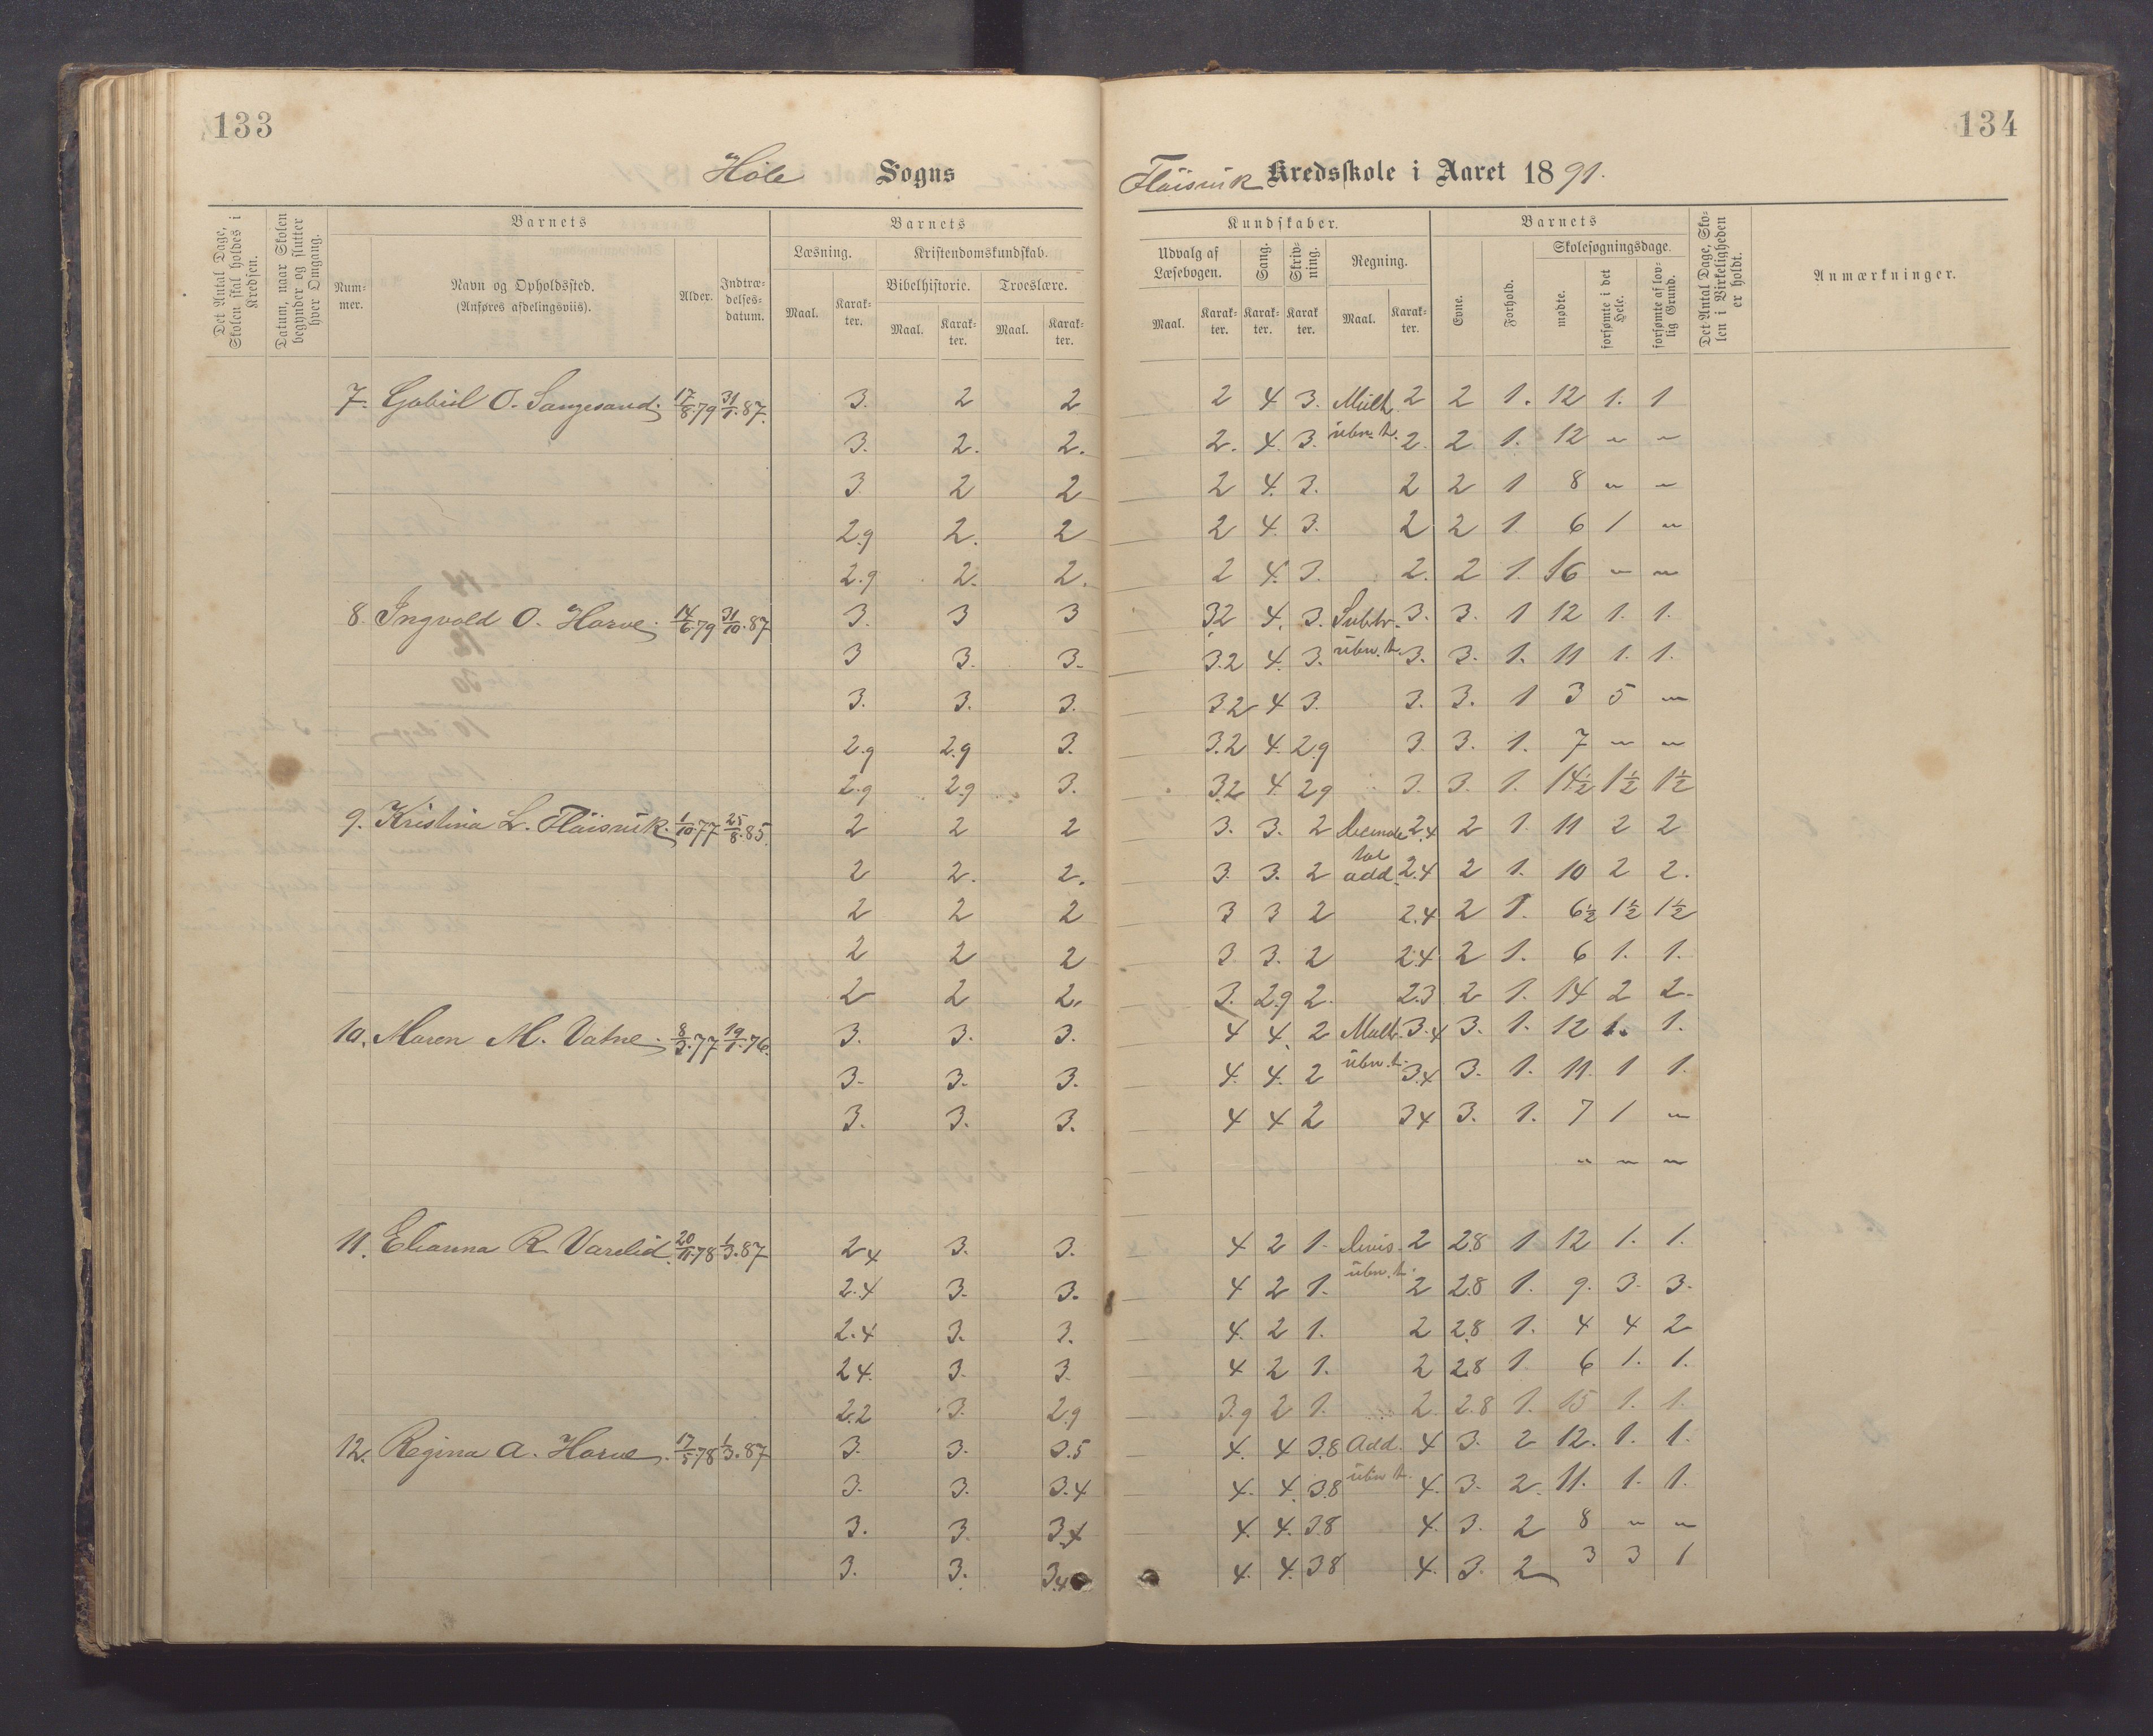 133
134
Höle Sogns
Fløisvik Kredsskole i Aaret 1891.
Det Antal Dage, Skolen skal holdes i Kredsen.
Datum, naar Skolen begynder og slutter hver Omgang.
Barnets
Num-
mer.
Navn og Opholdssted.
(Anføres afdelingsviis).
Alder.
Indtræ-
delses-
datum.
Barnets
Læsning.
Kristendomskundskab.
Bibelhistorie.
Troeslære.
Maal.
Karak-
ter.
Maal.
Karak-
ter.
Maal.
Karak-
ter.
Kundskaber.
Udvalg af
Læsebogen.
Sang.
Skriv-
ning.
Regning.
Maal.
Karak-
ter.
Karak-
ter.
Karak
ter.
Maal.
Karak-
ter.
Barnets
Evne.
Forhold.
Skolesøgningsdage.
mødte.
forsømte i det Hele.
forsømte af lov-
lig Grund.
Det Antal Dage, Sko-
len i Virkeligheden
er holdt.
Anmærkninger.
7. Gabriel O. Sangesand. 17/8.79 31/1.87. 3. 2 2 2 4 3. Mult. 2 2 1. 12 1. 1
3. 2. 2. 2. 4. 3. ubn. t. 2. 2 1. 12 " "
3 2 2 2 4. 3. 2 2 1 8 " "
2.9 2. 2 2 4. 3. 2 2 1. 6 1 "
2.9 2. 2. 2 4. 3. 2. 2 1. 16 " "
8. Ingvald O. Horve. 14/6.79 31/10.87 3. 3 3 3.2 4. 3. Subtr. 3. 3. 1 12 1. 1.
3 3. 3. 3.2 4. 3. ubn. t. 3. 3. 1. 11 1. 1.
3. 3. 3. 3.2 4 3. 3. 3. 1 3 5 "
2.9 2.9 3. 3.2 4. 2.9 3. 3. 1. 7 " "
2.9 2.9 3. 3.2 4 2.9 3. 3. 1. 14½ 1½ 1½
9. Kristina L. Fløisvik. 1/10.77 25/8.85. 2 2 2 3. 3. 2 2.4 2 1. 11 2 2
2 2. 2. 3. 3. 2 add. 2.4 2 1. 10 2 2.
2 2 2 3 3 2 2.4 2 1. 6½ 1½ 1½
2 2 2 3. 3. 2 2.4 2 1. 6 1. 1.
2 2 2. 3. 2.9 2. 2.3 2 1. 14 2 2.
10. Maren M. Vatne. 8/3.77 19/1.76. 3. 3. 3. 4 4. 2 Mult. 3.4 3. 1. 12 1. 1.
3. 3. 3. 4. 4. 2 ubn. t. 3.4 3. 1. 11. 1 1.
3. 3. 3. 4 4 2 3.4 3. 1. 7 1 "
" " "
11. Elianna R. Varelid. 20/11.78 1/3.87 2.4 3. 3. 4 2 1. Divis. 2 2.8 1 12 1. 1.
2.4 3. 3. 4 2 1. ubn. t. 2 2.8 1. 9. 3. 3.
2.4 3. 3. 4. 2 1. 2 2.8 1. 4 4 2
2.4. 3. 3. 4 2 1. 2 2.8 1. 6 1. 1.
2.2 3. 2.9 3.9 2 1. 2. 2.8 1. 15 1. 1.
12. Regina A. Horve. 17/5.78 1/3.87 3. 3. 3.5 4. 4 3.8 Add. 4 3. 2 12. 1. 1.
3. 3. 3.4 4. 4. 3.8 ubn. t. 4. 3. 2. 11. 1. 1.
3. 3. 3.4 4. 4. 3.8 4. 3. 2 8 " "
3. 3. 3.4 4. 4. 3.8 4. 3. 2 3 3 1